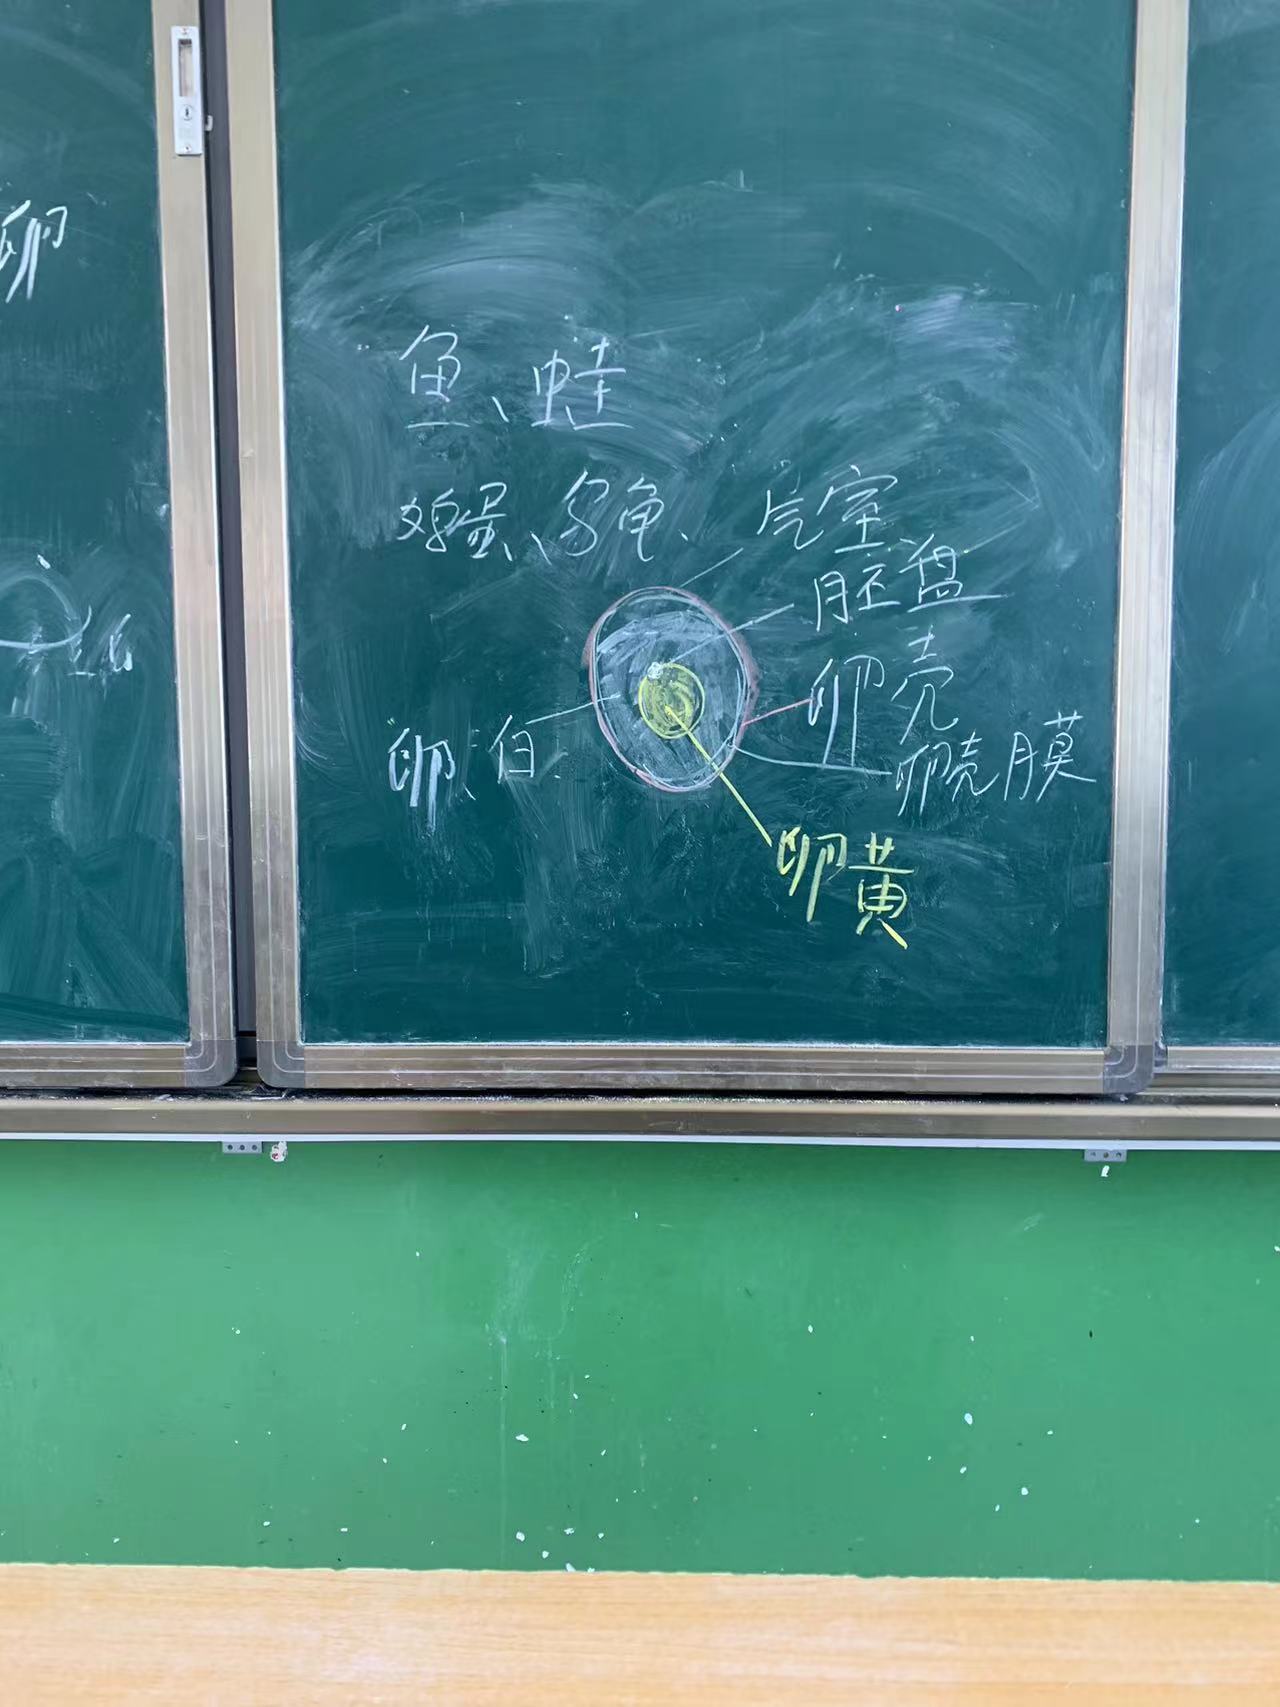 卵
鱼、蛙
鸡蛋、乌龟、
气室
胚盘
卵壳
卵白
卵壳膜
卵黄